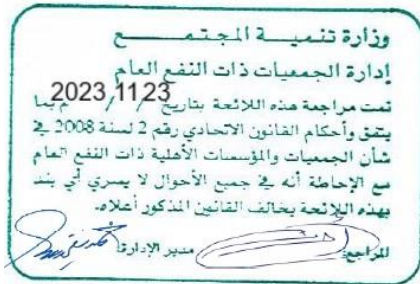 وزارة تنميـــة المجتمـــــع
إدارة الجمعيات ذات النفع العام
تمت مراجعة هذه اللائحة بتاريخ 2023,11,23 / / م بما
يتفق وأحكام القانون الاتحادي رقم 2 لسنة 2008 في
شأن الجمعيات والمؤسسات الأهلية ذات النفع العام
مع الإحاطة أنه في جميع الأحوال لا يسري أي بند
بهذه اللائحة يخالف القانين المذكور أعلاه.
المراجع: مدير الإدارة: